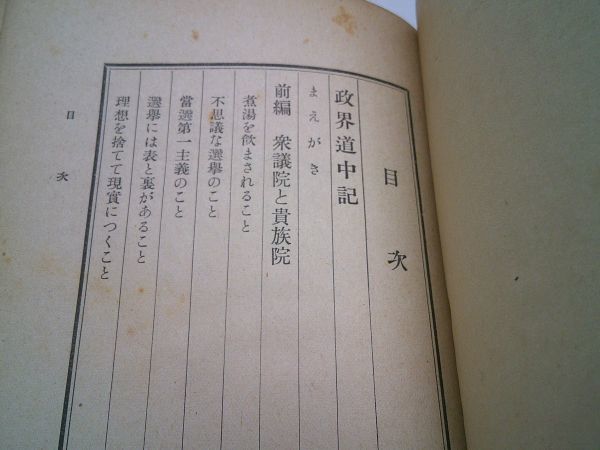 目次
政界道中記
まえがき
前編 衆議院と貴族院
煮湯を飮まされること
不思議な選擧のこと
當選第一主義のこと
選擧には表と裏があること
理想を捨てて現實につくこと
目次